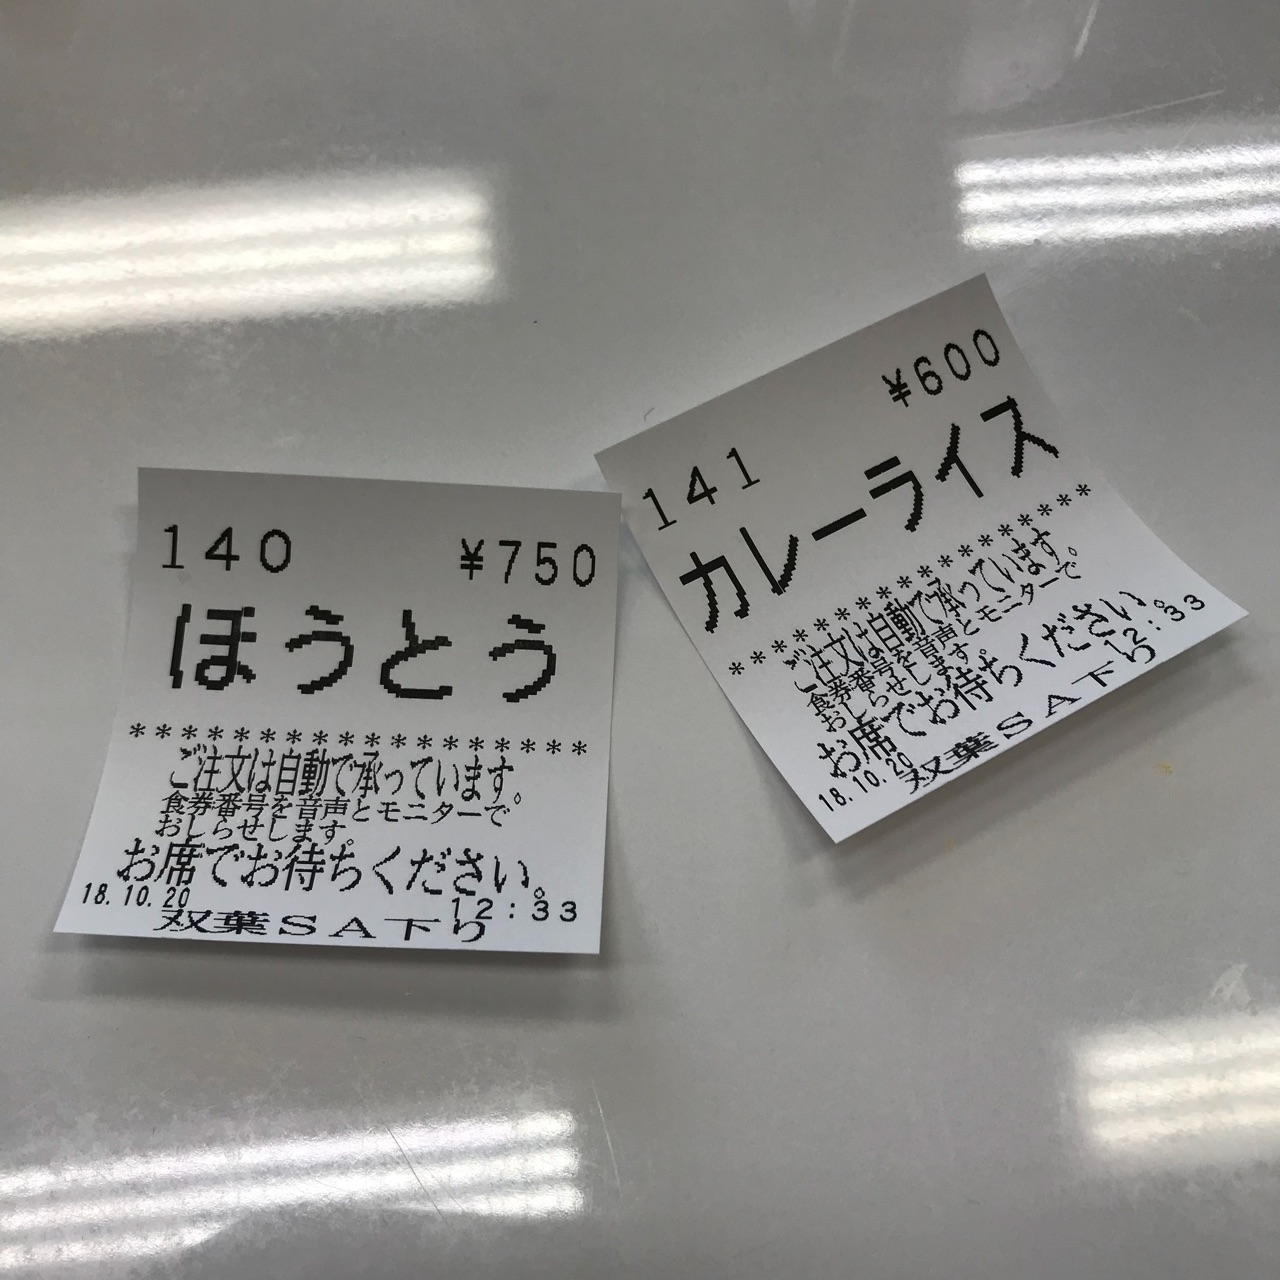 140 ¥750
ほうとう
******************
ご注文は自動で承っています。
食券番号を音声とモニターで
おしらせします。
お席でお待ちください。
18.10.20 12:33
双葉SA下り
141 ¥600
カレーライス
******************
ご注文は自動で承っています。
食券番号を音声とモニターで
おしらせします。
お席でお待ちください。
18.10.20 12:33
双葉SA下り